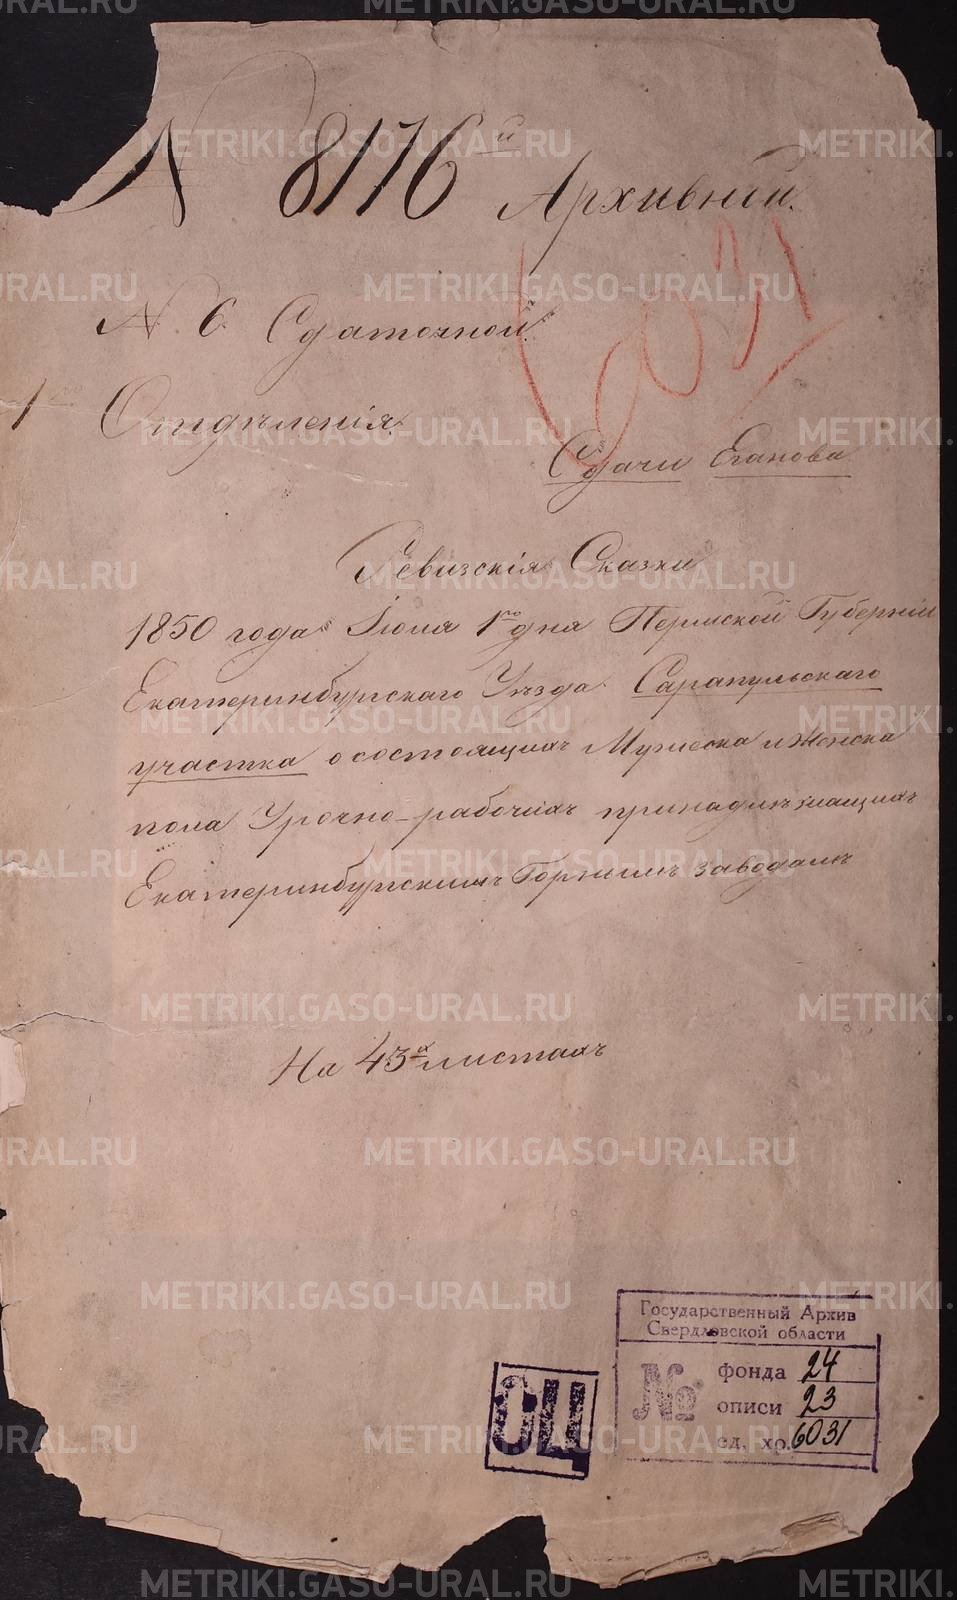 № 8176й Архивный.
№ 6. Сдаточной
1го Отдѣленія.
6031
Сдачи Еганова
Ревизскія Сказки
1850 года Iюня 1го дня Пермской Губерніи
Екатеринбургскаго Уѣзда Сарапульскаго
участка о состоящихъ Мужеска и Женска
пола Урочно-рабочихъ принадлѣжащихъ
Екатеринбургскимъ Горнымъ заводамъ
На 43х листахъ
Государственный Архив
Свердловской области
№ фонда 24
описи 23
ед. хр. 6031
ОЦ
METRIKI.GASO-URAL.RU